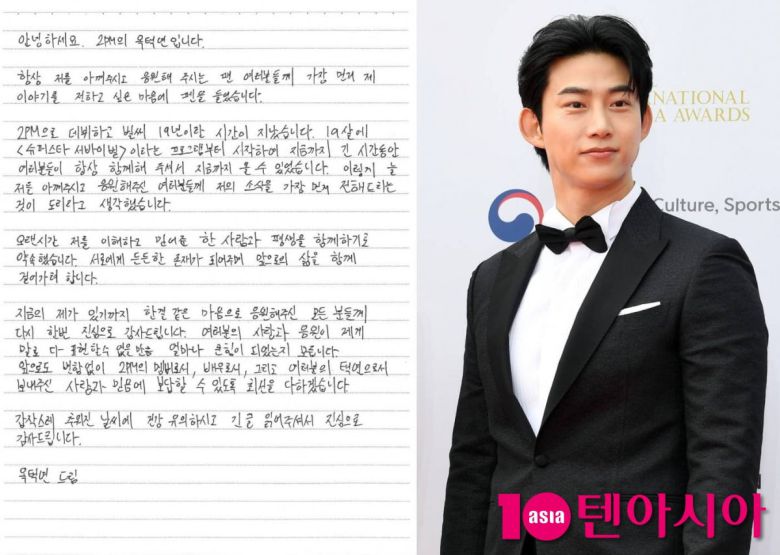 안녕하세요. 2PM의 옥택연입니다.
항상 저를 아껴주시고 응원해 주시는 팬 여러분들께 가장 먼저 제
이야기를 전하고 싶은 마음에 펜을 들었습니다.
2PM으로 데뷔하고 벌써 19년이란 시간이 지났습니다. 19살에
<슈퍼스타 서바이벌>이라는 프로그램부터 시작하여 지금까지 긴 시간동안
여러분들이 항상 함께해 주셔서 지금까지 올 수 있었습니다. 이렇게 늘
저를 아껴주시고 응원해주신 여러분들께 저의 소식을 가장 먼저 전해드리는
것이 도리라고 생각했습니다.
오랜시간 저를 이해하고 믿어준 한 사람과 평생을 함께하기로
약속했습니다. 서로에게 든든한 존재가 되어주며 앞으로의 삶을 함께
걸어가려 합니다.
지금의 제가 있기까지 한결 같은 마음으로 응원해주신 모든 분들께
다시 한번 진심으로 감사드립니다. 여러분의 사랑과 응원이 제게
말로 다 표현할수 없을 만큼 얼마나 큰힘이 되었는지 모릅니다.
앞으로도 변함없이 2PM의 멤버로서, 배우로서, 그리고 여러분의 택연으로서
보내주신 사랑과 믿음에 보답할 수 있도록 최선을 다하겠습니다
갑작스레 추워진 날씨에 건강 유의하시고 긴 글 읽어주셔서 진심으로
감사드립니다.
옥택연 드림
NATIONAL
A AWARDS
Culture, Sports
10 asia 텐아시아